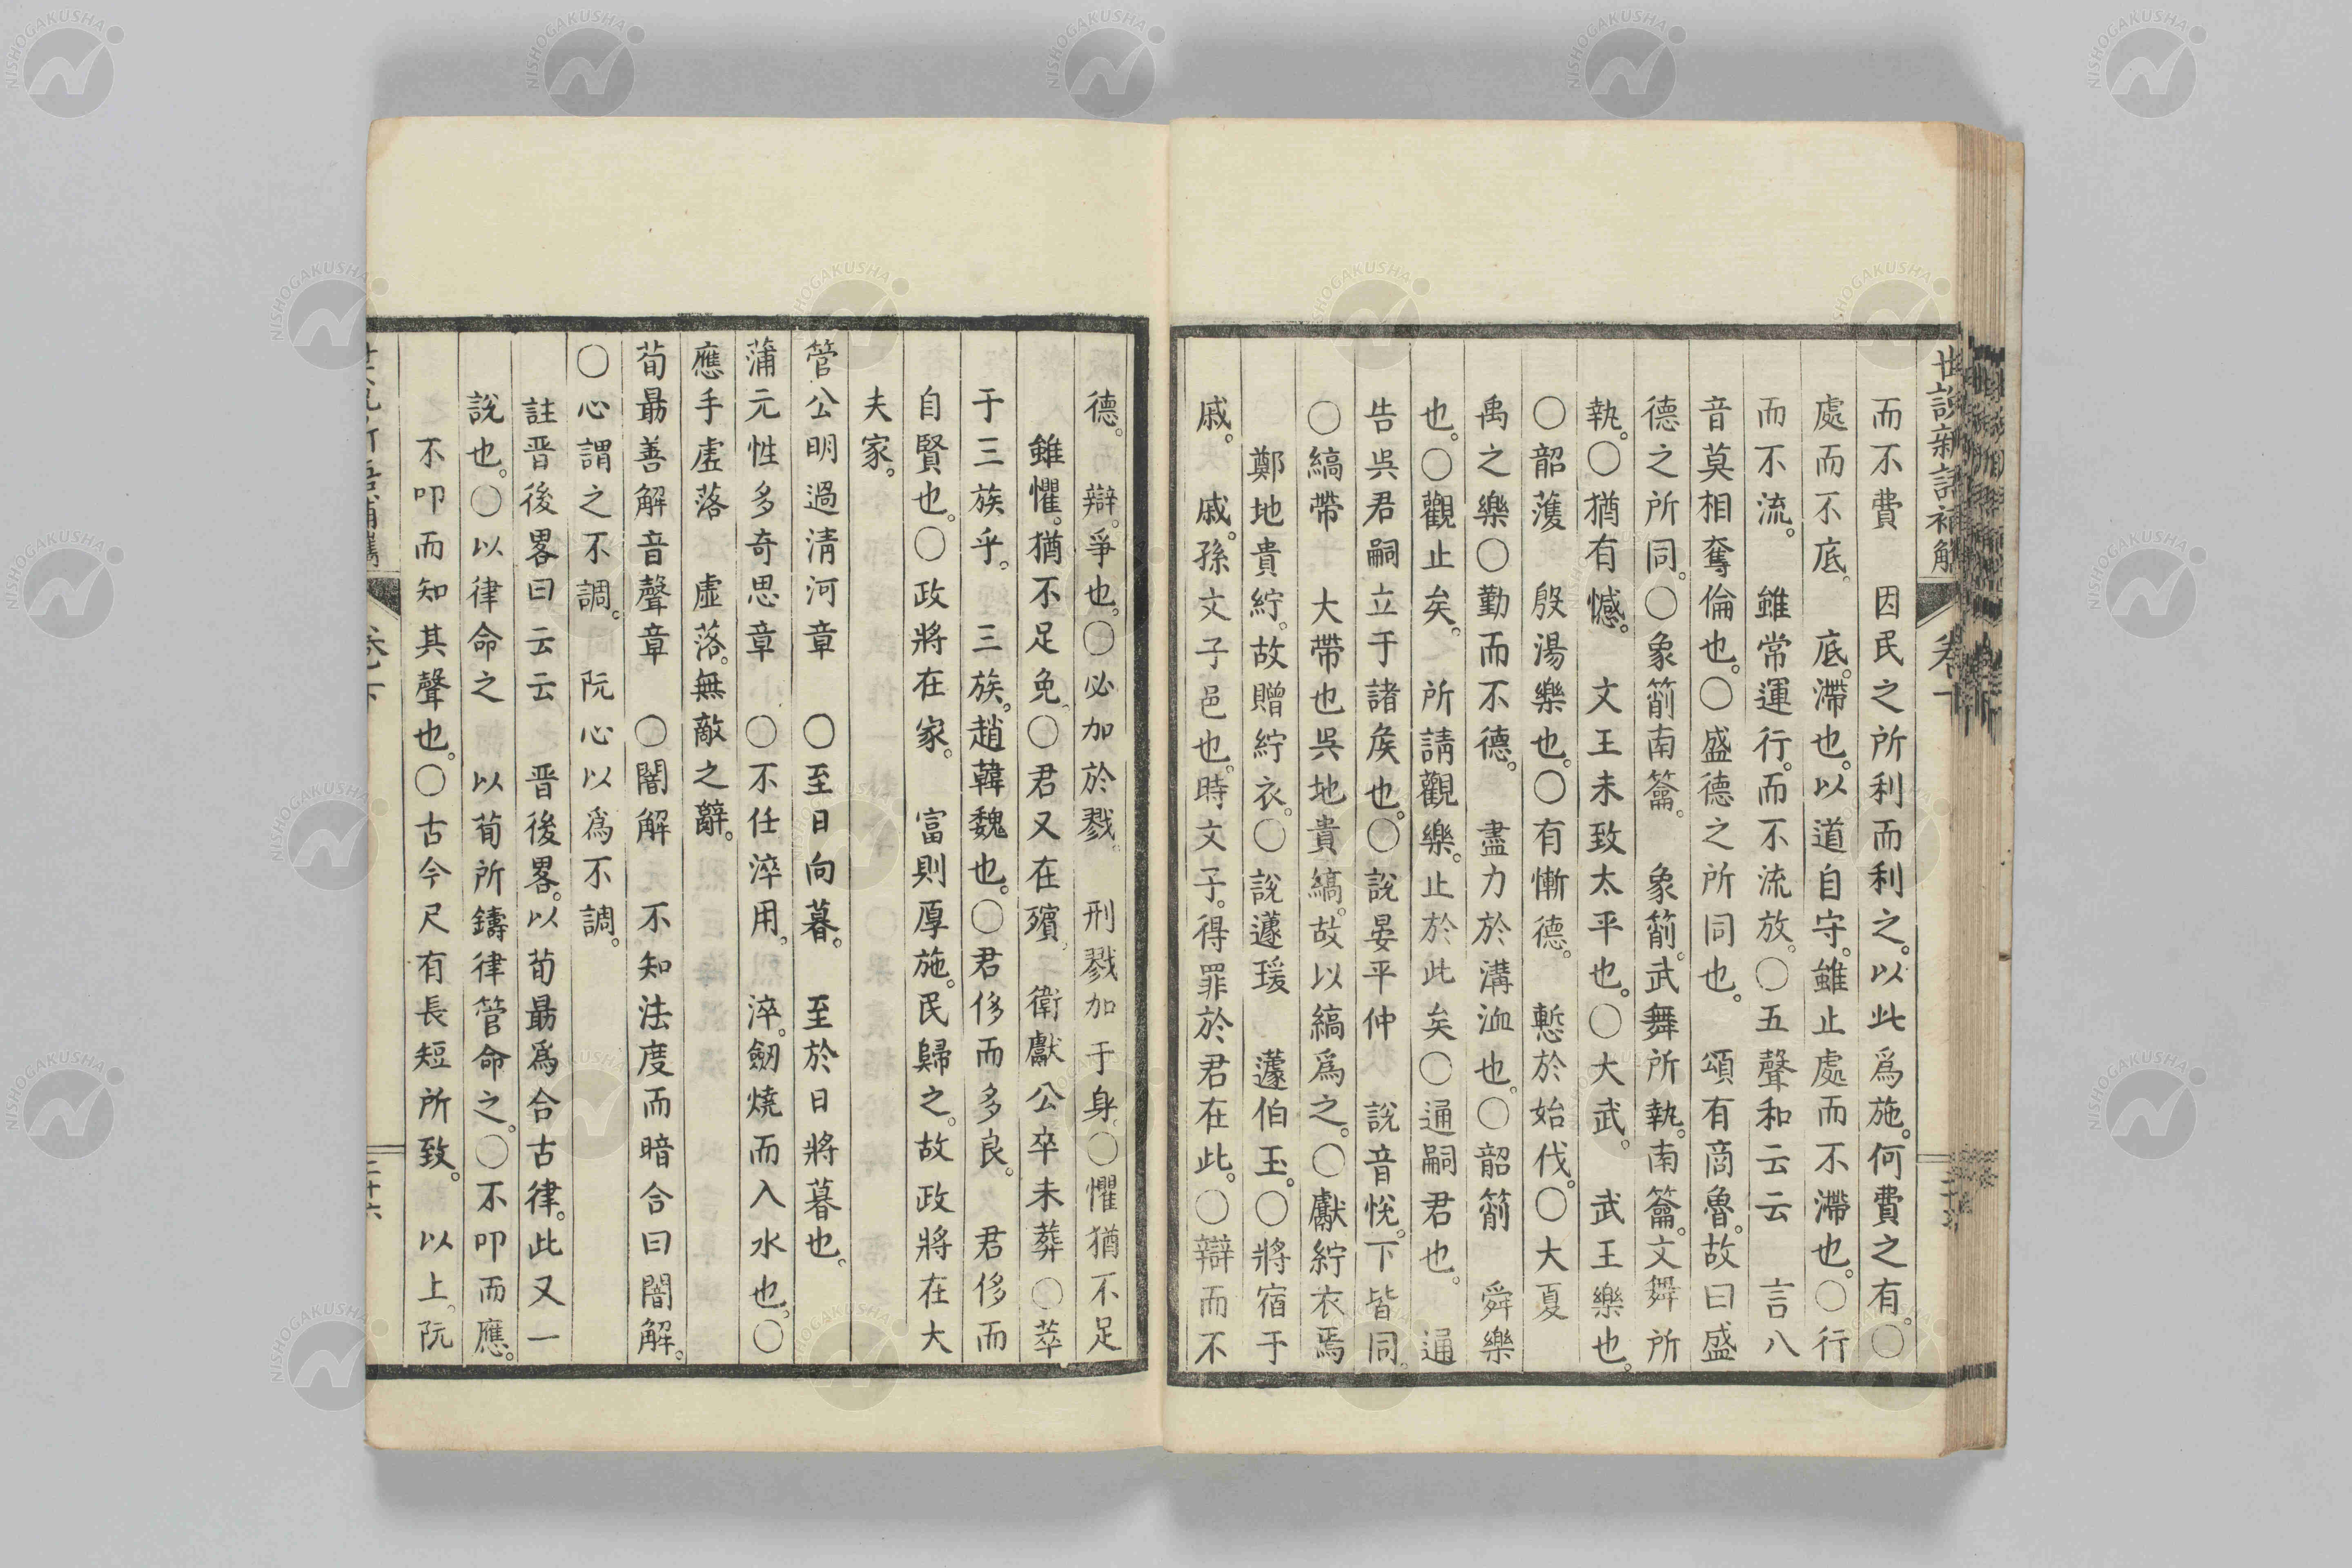 而不費　因民之所利而利之。以此爲施。何費之有。○
處而不底。　底。滯也。以道自守。雖止處而不滯也。○行
而不流。　雖常運行。而不流放。○五聲和云云　言八
音莫相奪倫也。○盛德之所同也。　頌有商魯。故曰盛
德之所同。○象箾南籥。　象箾。武舞所執。南籥。文舞所
執。○猶有憾。　文王未致太平也。○大武。　武王樂也。
○韶濩　殷湯樂也。○有慚德。　慙於始伐。○大夏
禹之樂○勤而不德。　盡力於溝洫也。○韶箾　舜樂
也。○觀止矣。　所請觀樂。止於此矣○通嗣君也。　通
告吳君嗣立于諸矦也。○說晏平仲　說音悅。下皆同。
○縞帶　大帶也吳地貴縞。故以縞爲之。○獻紵衣焉
鄭地貴紵。故贈紵衣。○說蘧瑗　蘧伯玉。○將宿于
戚。　戚。孫文子邑也。時文子。得罪於君在此。○辯而不
德。　辯。爭也。○必加於戮。　刑戮加于身。○懼猶不足
雖懼。猶不足免。○君又在殯。　衛獻公卒未葬○萃
于三族乎。　三族。趙韓魏也。○君侈而多良。　君侈而
自賢也。○政將在家。　富則厚施。民歸之。故政將在大
夫家。
管公明過清河章　○至日向暮。　至於日將暮也。
蒲元性多奇思章　○不任淬用。　淬。劒燒而入水也。○
應手虛落　虛落。無敵之辭。
荀勗善解音聲章　○闇解　不知法度而暗合曰闇解。
○心謂之不調。　阮心以爲不調。
註晉後畧曰云云　晉後畧。以荀勗爲合古律。此又一
說也。○以律命之　以荀所鑄律管命之。○不叩而應。
不叩而知其聲也。○古今尺有長短所致。　以上。阮
NISHOGAKUSHA